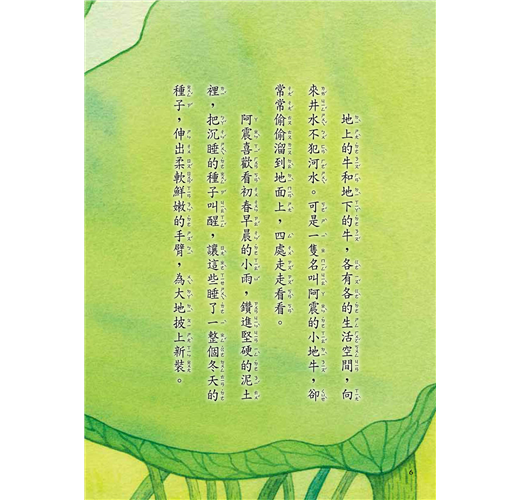 地上的牛和地下的牛，各有各的生活空間，向
來井水不犯河水。可是一隻名叫阿震的小地牛，卻
常常偷偷溜到地面上，四處走走看看。
阿震喜歡看初春早晨的小雨，鑽進堅硬的泥土
裡，把沉睡的種子叫醒，讓這些睡了一整個冬天的
種子，伸出柔軟鮮嫩的手臂，為大地披上新裝。